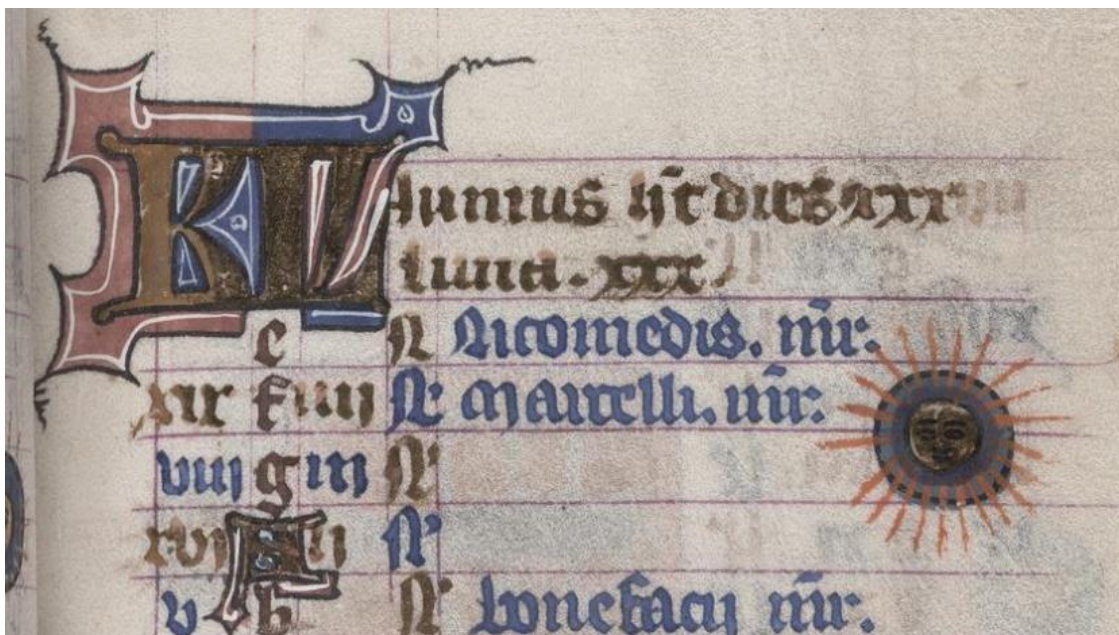 KL Iunius h̄t dies xxx
luna. xxx.
e N Nicomedis. mr̄.
xix f iiij N Marcelli. mr̄.
viij g iij N
xvj A ij N
v b N bonefacij mr̄.